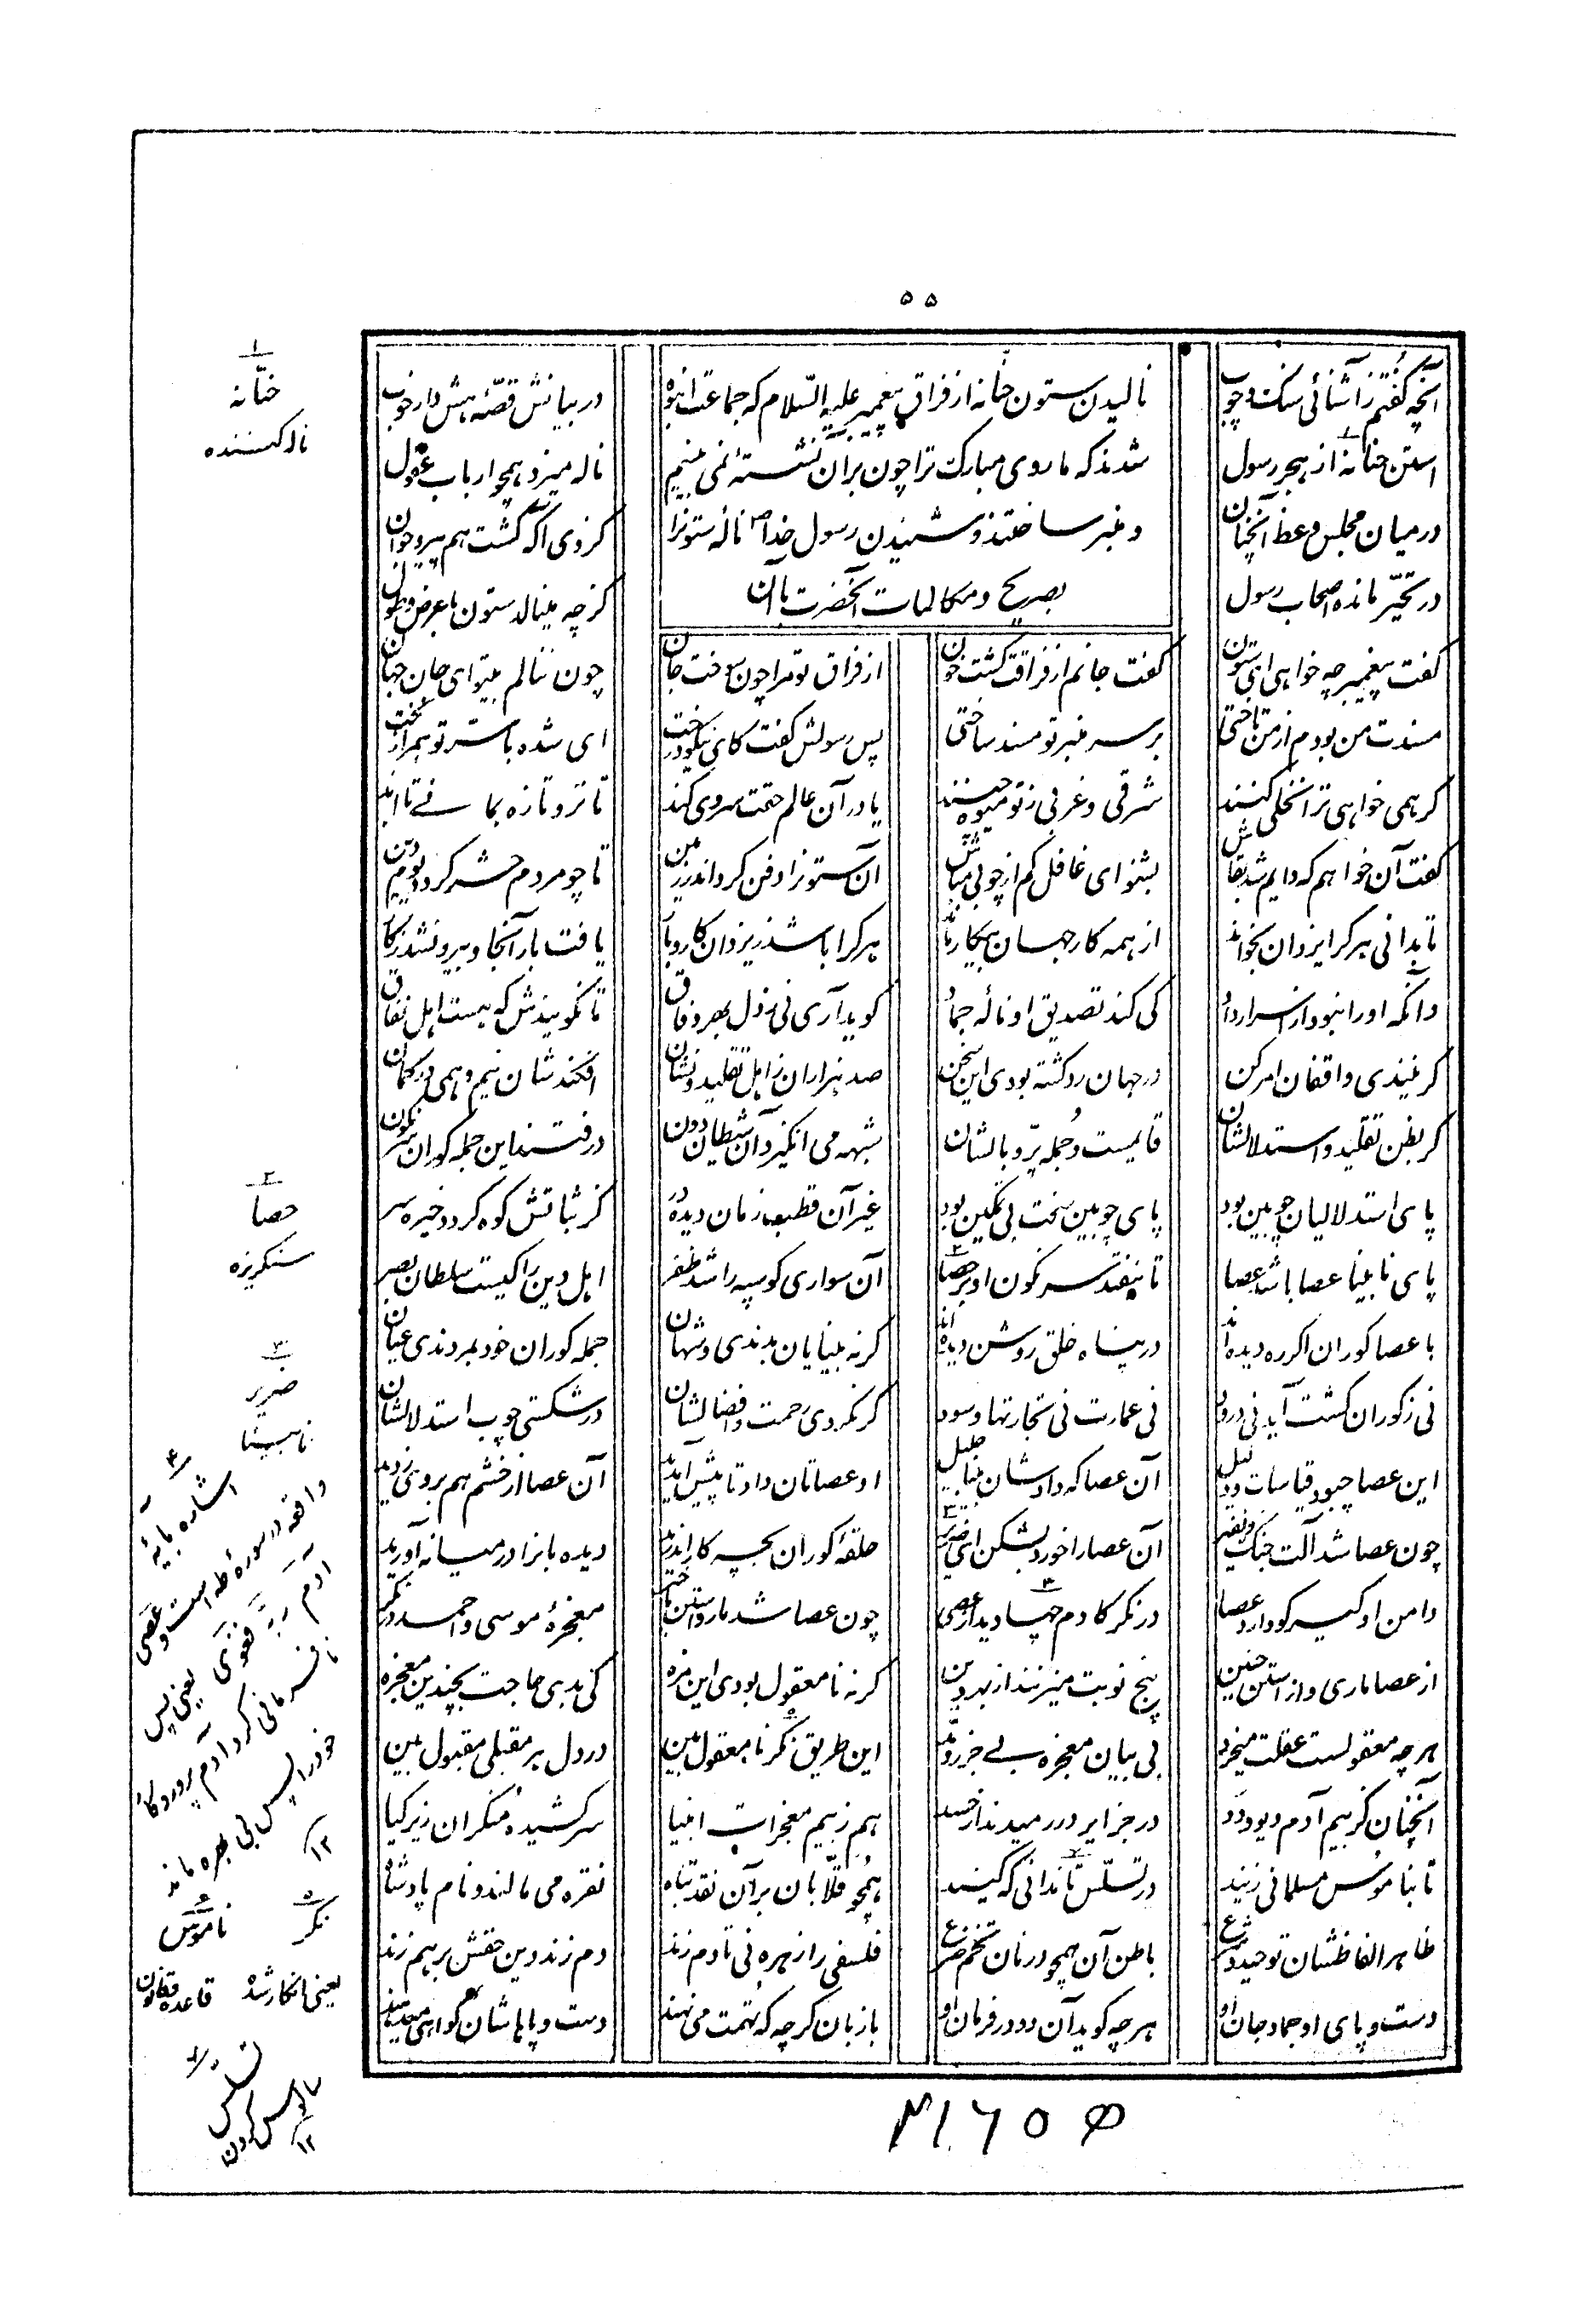 ۵۵
آنچه گفتم ز آشنائی سنگ و چوب در بیانش قصّهٔ هش دار خوب
نالیدن ستون حنّانه از فراق پیغمبر علیه السّلام که جماعت انبوه
شدند که ما روی مبارک ترا چون بر آن نشستهٔ نمی بینیم
و منبر ساختند و شنیدن رسول خدا ص نالهٔ ستونرا
بصریح و مکالمات آنحضرت با آن
استن حنانه از هجر رسول ناله میزد همچو ارباب عقول
در میان مجلس وعظ آنچنان کز وی آگه گشت هم پیر و جوان
در تحیّر مانده اصحاب رسول کز چه مینالد ستون با عرض و طول
گفت پیغمبر چه خواهی ای ستون گفت جانم از فراقت گشت خون از فراق تو مرا چون سوخت جان چون ننالم بیتو ای جان جهان
مسندت من بودم از من تاختی بر سر منبر تو مسند ساختی پس رسولش گفت کای نیکو درخت ای شده با سرّ تو همراز بخت
گر همی خواهی ترا نخلی کنند شرقی و غربی ز تو میوه چنند یا در آن عالم حقت سروی کند تا تر و تازه بمانی تا ابد
گفت آن خواهم که دایم شد بقاش بشنو ای غافل کم از چوبی مباش آن ستونرا دفن کرد اندر زمین تا چو مردم حشر گردد یوم دین
تا بدانی هر کرا یزدان بخواند از همه کار جهان بیکار ماند هر کرا باشد ز یزدان کار و بار یافت بار آنجا و بیرون شد ز کار
وانکه او را نبود از اسرار داد کی کند تصدیق او نالهٔ جماد گوید آری نی ز دل بهر وفاق تا نگویندش که هست اهل نفاق
گر نیندی واقفان امر کن در جهان رد گشته بودی این سخن صد هزاران ز اهل تقلید و نشان افکندشان نیم وهمی در گمان
که بظن تقلید و استدلالشان قایمست و جمله پرّ و بالشان شبهه می انگیزد آن شیطان دون در فتند این جمله کوران سرنگون
پای استدلالیان چوبین بود پای چوبین سخت بی تمکین بود غیر آن قطب زمان دیده ور کز ثباتش کوه گردد خیره سر
پای نابینا عصا باشد عصا تا نیفتد سرنگون او بر حصا آن سواری کو سپه را شد ظفر اهل دین را کیست سلطان بصر
با عصا کوران اگر ره دیده اند در پناه خلق روشن دیده اند گر نه بینایان بدندی و شهان جمله کوران خود بمردندی عیان
نی ز کوران کشت آید نی درود نی عمارت نی تجارتها و سود گر نکردی رحمت و افضالشان در شکستی چوب استدلالشان
این عصا چبود قیاسات و دلیل آن عصا که دادشان بینا جلیل او عصاتان داد تا پیش آیدید آن عصا از خشم هم بر وی زدید
چون عصا شد آلت جنگ و نفیر آن عصا را خورد بشکن ای ضریر حلقهٔ کوران بچه کار اندرید دیده بانرا در میانه آورید
دامن او گیر کو دادت عصا در نگر کادم چها دید از عصی چون عصا شد مار و استن با خبر معجزهٔ موسی و احمد در نگر
از عصا ماری و از استن حنین پنج نوبت میزنند از بهر دین گر نه نامعقول بودی این مزه کی بدی حاجت بچندین معجزه
هر چه معقولست عقلت میخرد بی بیان معجزه بی جزر و مد این طریق نکر نامعقول بین در دل هر مقبلی مقبول بین
آنچنان کز بیم آدم دیو و دد در جزایر در رمیدند از حسد هم ز بیم معجزات انبیا سر کشیده منکران زیر گیا
تا بناموس مسلمانی زیند در تسلّس تا ندانی که کیند همچو قلّابان بر آن نقد تباه نقره می مالند و نام پادشاه
ظاهر الفاظشان توحید و شرع باطن آن همچو در نان تخم صرع فلسفی را زهره نی تا دم زند دم زند دین حقش بر هم زند
دست و پای او جماد و جان او هر چه گوید آن دو در فرمان او با زبان گرچه که تهمت می نهند دست و پاهاشان گواهی میدهند
۱
حنّانه
ناله کننده
۲
حصا
سنگریزه
۳
ضریر
نابینا
۴
اشاره بآیهٔ
واقعه در سورهٔ طه است و عَصَی
آدَمُ رَبَّهُ فَغَوَی یعنی پس
نافرمانی کرد آدم پروردگار
خود را پس بی بهره ماند
۱۲
۵
نکر
یعنی انکار شده
۶
ناموس
قاعده و قانون
تسلس
سالوس کردن
۱۲